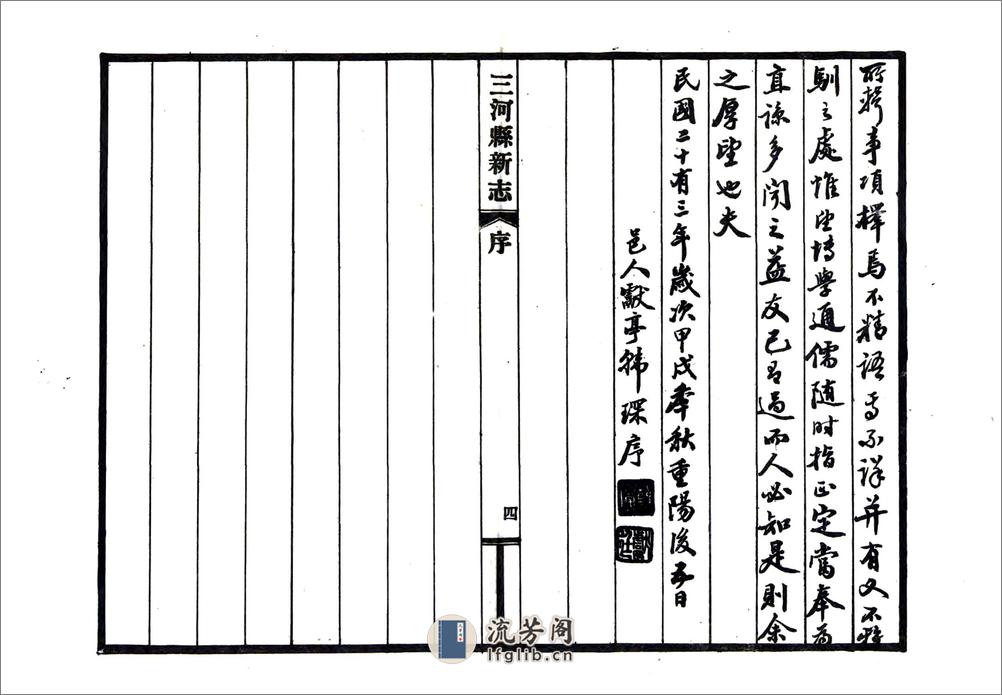 所載事項擇焉不精語焉不詳并有文不雅
馴之處惟望博學通儒隨时指正定當奉为
直諒多聞之益友己有過而人必知是則余
之厚望也夫
民國二十有三年歲次甲戌季秋重陽後五日
邑人獻亭韩琛序
三河縣新志
序
四
流芳阁
lfglib.cn